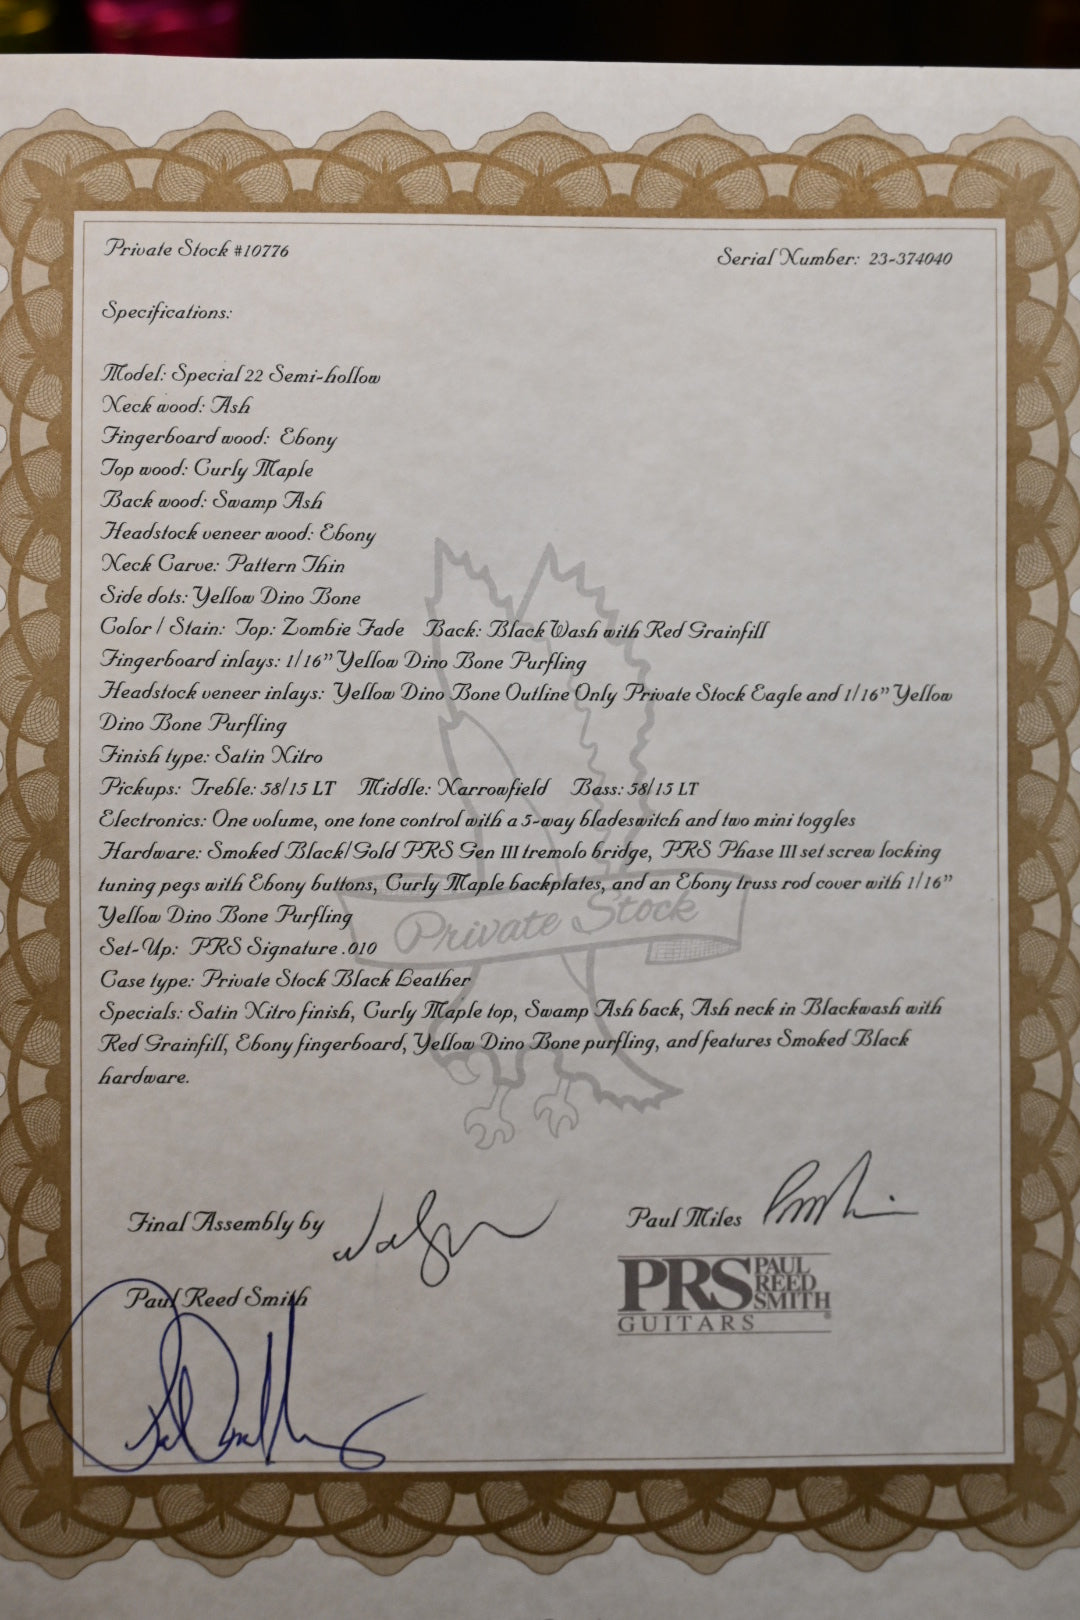 Private Stock #10776
Serial Number: 23-374040
Specifications:
Model: Special 22 Semi-hollow
Neck wood: Ash
Fingerboard wood: Ebony
Top wood: Curly Maple
Back wood: Swamp Ash
Headstock veneer wood: Ebony
Neck Carve: Pattern Thin
Side dots: Yellow Dino Bone
Color / Stain: Top: Zombie Fade Back: Black Wash with Red Grainfill
Fingerboard inlays: 1/16" Yellow Dino Bone Purfling
Headstock veneer inlays: Yellow Dino Bone Outline Only Private Stock Eagle and 1/16" Yellow
Dino Bone Purfling
Finish type: Satin Nitro
Pickups: Treble: 58/15 LT Middle: Narrowfield Bass: 58/15 LT
Electronics: One volume, one tone control with a 5-way bladeswitch and two mini toggles
Hardware: Smoked Black/Gold PRS Gen III tremolo bridge, PRS Phase III set screw locking
tuning pegs with Ebony buttons, Curly Maple backplates, and an Ebony truss rod cover with 1/16"
Yellow Dino Bone Purfling
Private Stock
Set-Up: PRS Signature .010
Case type: Private Stock Black Leather
Specials: Satin Nitro finish, Curly Maple top, Swamp Ash back, Ash neck in Blackwash with
Red Grainfill, Ebony fingerboard, Yellow Dino Bone purfling, and features Smoked Black
hardware.
Final Assembly by
Paul Miles
Paul Reed Smith
PRS PAUL REED SMITH
GUITARS